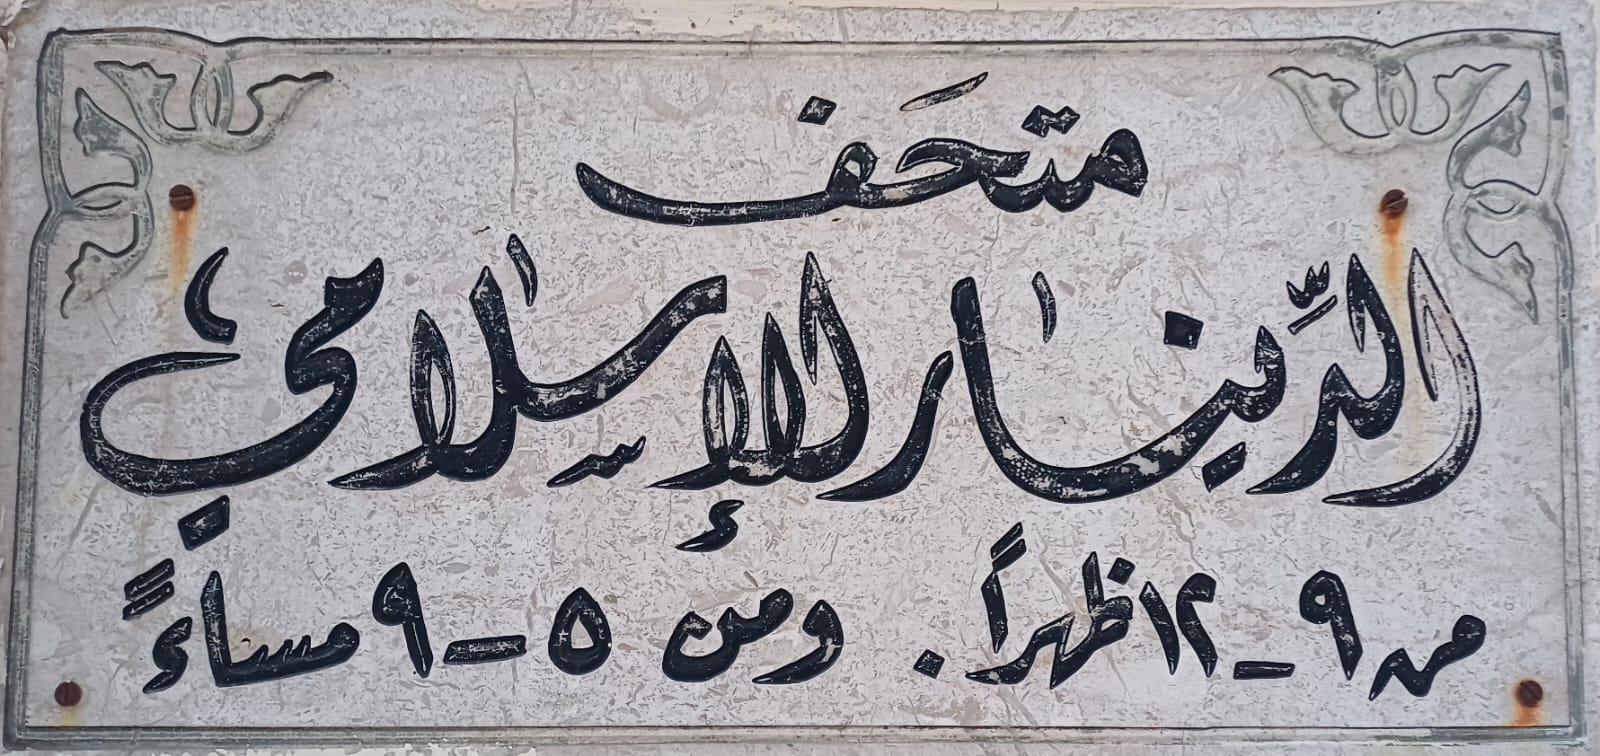 متحَف
الدِّينار الإسلامي
من ٩ - ١٢ ظهراً. ومن ٥ - ٩ مساءً